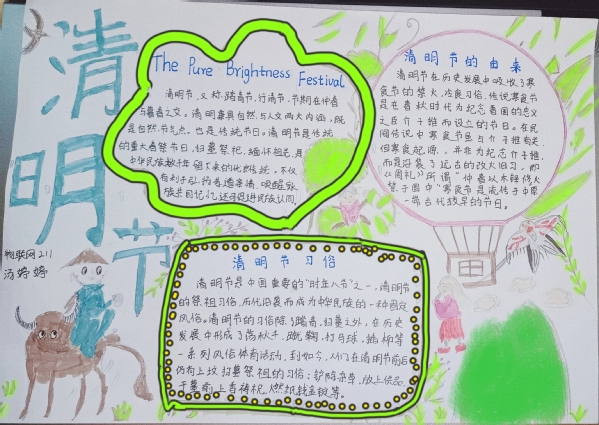 清明节
物联网211
汤婷婷
The Pure Brightness Festival
清明节,又称踏青节、行清节,节期在仲春
与暮春之交。清明兼具自然与人文两大内涵,既
是自然节气点,也是传统节日。清明节是传统
的重大春祭节日,扫墓祭祀、缅怀祖先,是
中华民族数千年留下来的优良传统,不仅
有利于弘扬孝道亲情、唤醒家
族共同记忆,还可促进民族认同。
清明节的由来
清明节在历史发展中吸收了寒
食节的禁火、冷食习俗,传说寒食节
是在春秋时代为纪念晋国的忠义
之臣介子推而设立的节日。在民
间传说中寒食节虽与介子推有关,
但寒食起源,并非为纪念介子推,
而是沿袭了远古的改火旧习,即
《周礼》所谓"仲春以木铎修火
禁于国中"寒食节是流传于中原
一带古代较早的节日。
清明节习俗
清明节是中国重要的"时年八节"之一,清明节
的祭祖习俗,历代沿袭而成为中华民族的一种固定
风俗。清明节的习俗除了踏青、扫墓之外,在历史
发展中形成了荡秋千、蹴鞠、打马球、插柳等
一系列风俗体育活动,到如今,人们在清明节前后
仍有上坟扫墓祭祖的习俗:铲除杂草,放上供品,
于墓前上香祷祝、燃纸钱金锭等。